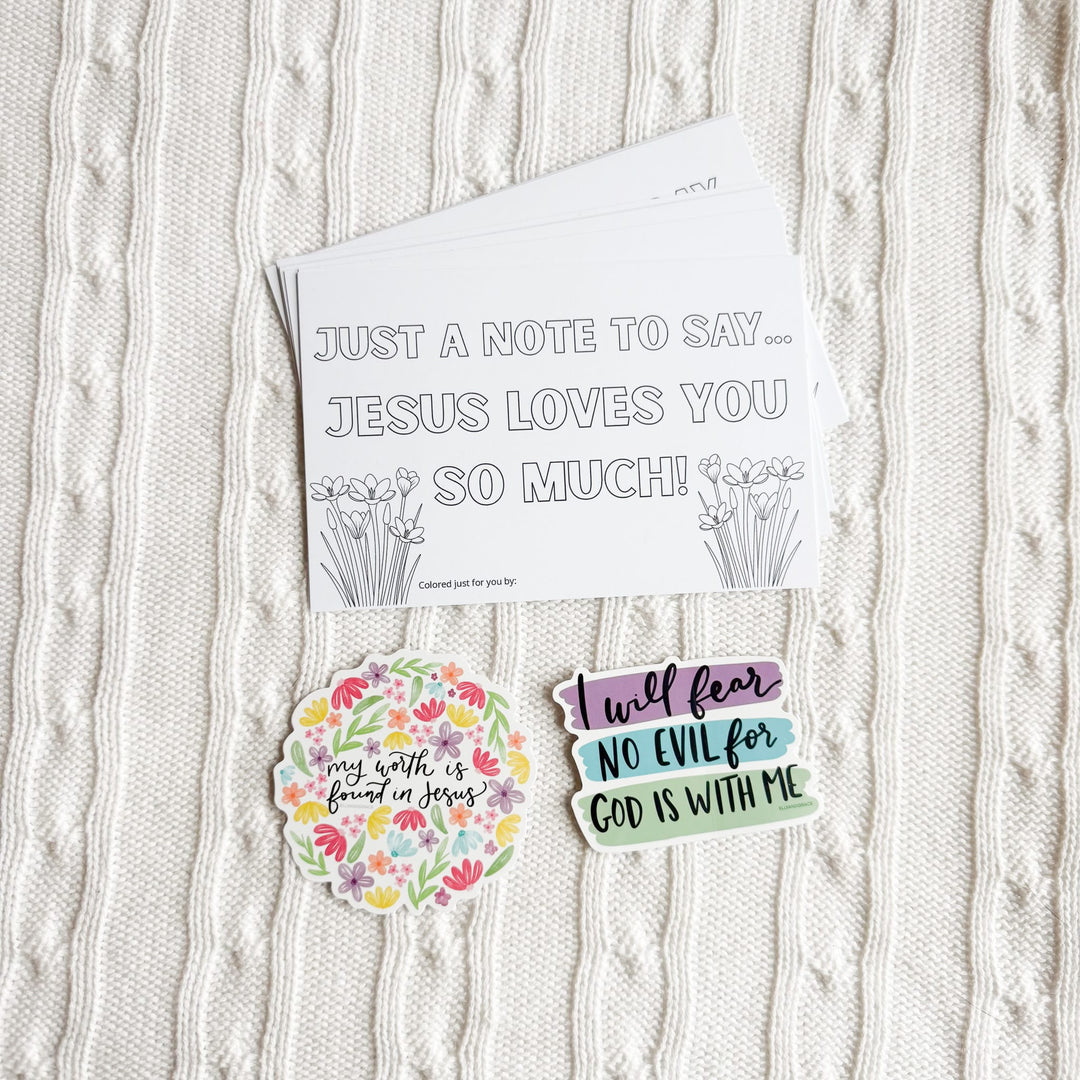 AY
JUST A NOTE TO SAY...
JESUS LOVES YOU
SO MUCH!
Colored just for you by:
my worth is
found in Jesus
I will fear
NO EVIL for
GOD IS WITH ME